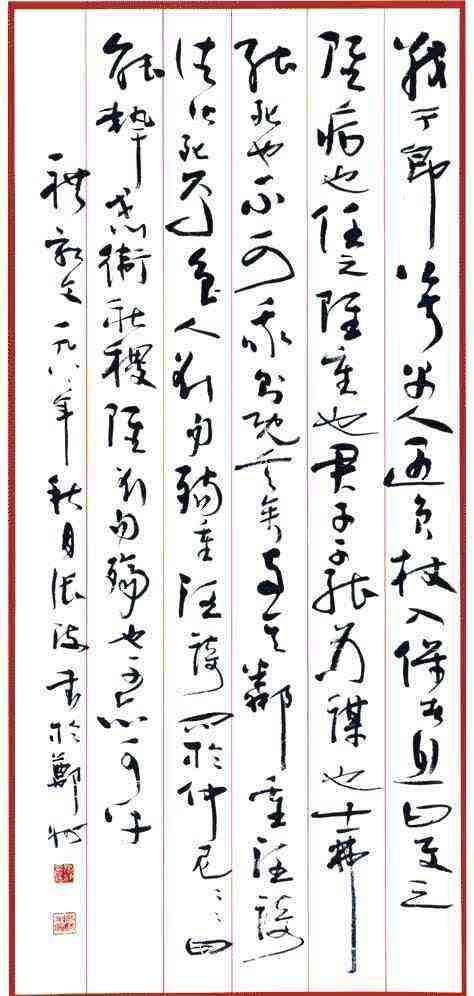 戰于郎公叔禺人遇負杖入保者息曰使之
雖病也任之雖重也君子不能為謀也士弗
能死也不可我則既言矣與其鄰重汪踦
往皆死焉魯人欲勿殤重汪踦問於仲尼〻〻曰
能執干戈以衛社稷雖欲勿殤也不亦可乎
禮記文一九八年秋月張海書於鄭州